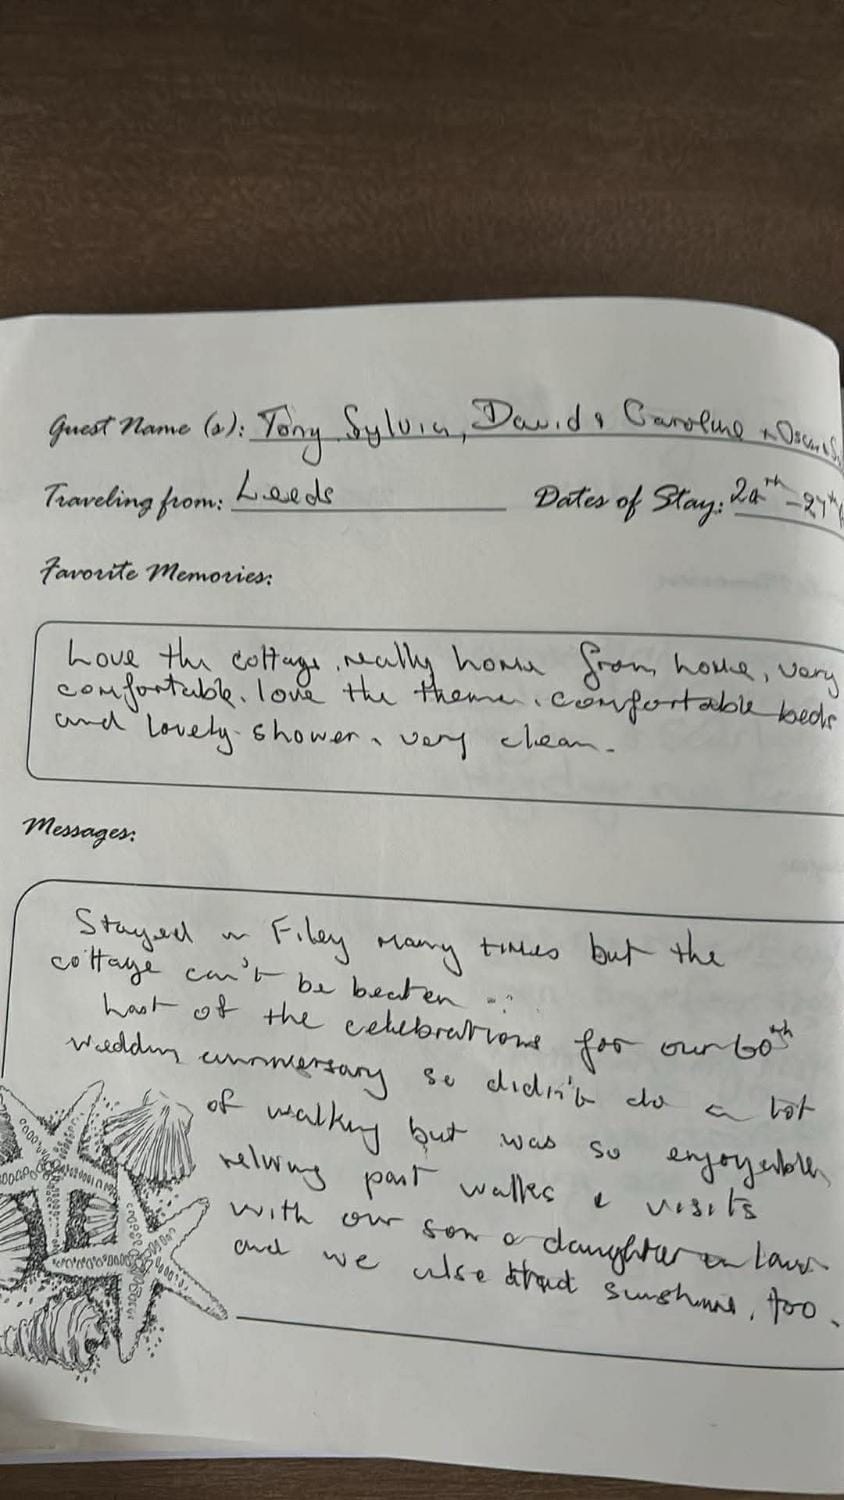 Guest Name (s): Tony Sylvia, David & Caroline + Oscar
Traveling from: Leeds
Dates of Stay:
Favorite Memories:
Love the cottage, really home from home, very
comfortable. love the theme. comfortable beds
and lovely shower, very clean.
Messages:
Stayed in Filey many times but the
cottage can't be beaten
Last of the celebrations for our 60th
wedding anniversary so didn't do a lot
of walking but was so enjoyable
reliving past walks & visits
with our son & daughter in law
and we also had sunshine, too.